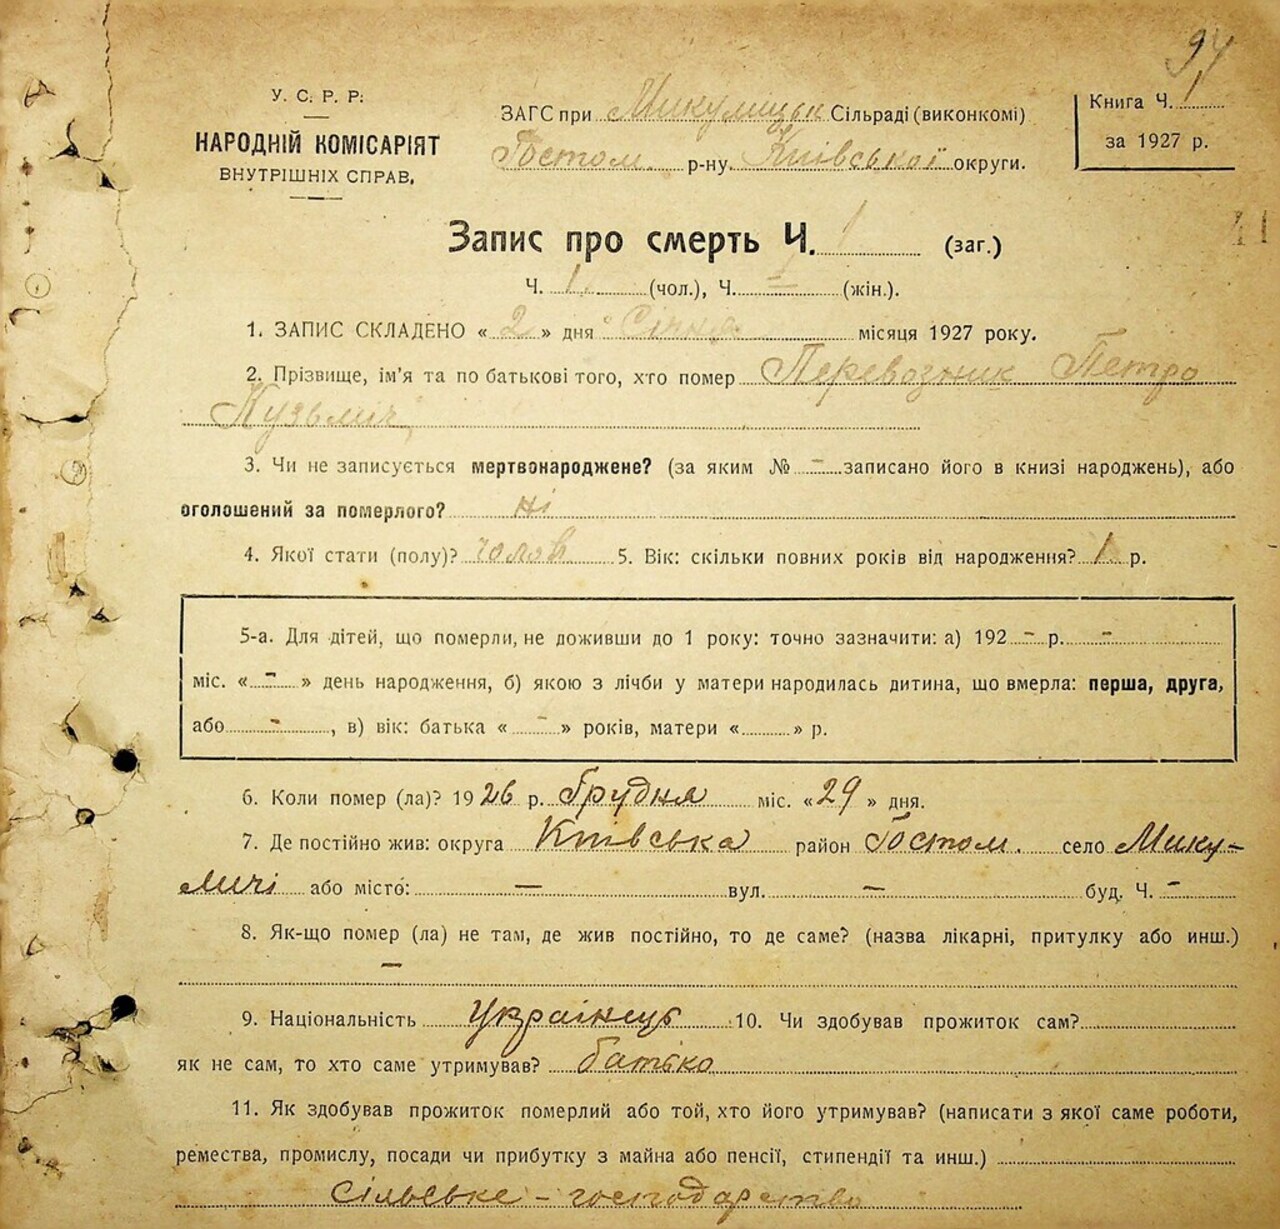 94
У. С. Р. Р.
НАРОДНІЙ КОМІСАРІЯТ
ВНУТРІШНІХ СПРАВ.
ЗАГС при Микулицьк Сільраді (виконкомі)
Гостом. р-ну. Київської округи.
Книга Ч. 1
за 1927 р.
Запис про смерть Ч. 1 (заг.)
Ч. 1. (чол.), Ч. – (жін.).
1. ЗАПИС СКЛАДЕНО « 2 » дня Січня місяця 1927 року.
2. Прізвище, ім'я та по батькові того, хто помер Перевозник Петро
Кузьмич
3. Чи не записується мертвонароджене? (за яким № – записано його в книзі народжень), або
оголошений за померлого? ні
4. Якої стати (полу)? чолов 5. Вік: скільки повних років від народження? 1 р.
5-а. Для дітей, що померли, не доживши до 1 року: точно зазначити: а) 192 – р. –
міс. « – » день народження, б) якою з лічби у матери народилась дитина, що вмерла: перша, друга,
або – , в) вік: батька « – » років, матери « » р.
6. Коли помер (ла)? 1926 р. Грудня міс. «29 » дня.
7. Де постійно жив: округа Київська район Гостом. село Мику-
личі або місто: – вул. – буд. Ч. –
8. Як-що помер (ла) не там, де жив постійно, то де саме? (назва лікарні, притулку або инш.)
–
9. Національність Українець 10. Чи здобував прожиток сам?
як не сам, то хто саме утримував? батько
11. Як здобував прожиток померлий або той, хто його утримував? (написати з якої саме роботи,
ремества, промислу, посади чи прибутку з майна або пенсії, стипендії та инш.)
сільське – господарство